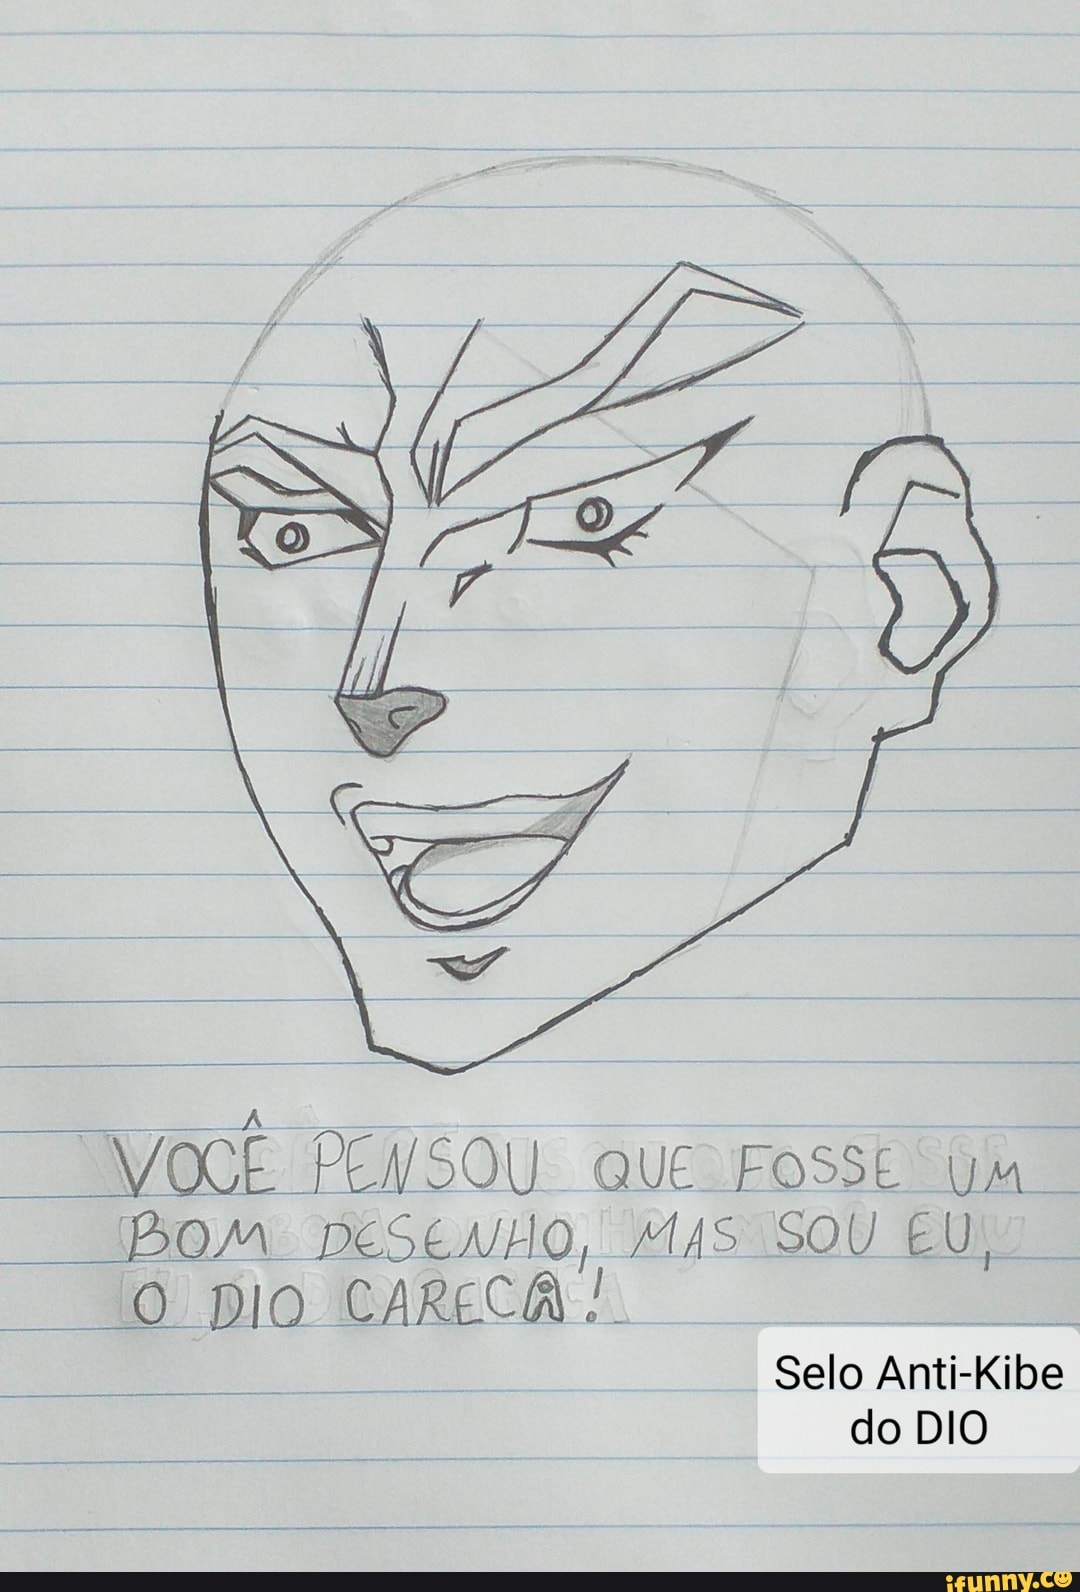 VOCÊ PENSOU QUE FOSSE UM
BOM DESENHO, MAS SOU EU,
O DIO CARECA!
Selo Anti-Kibe
do DIO
ifunny.co